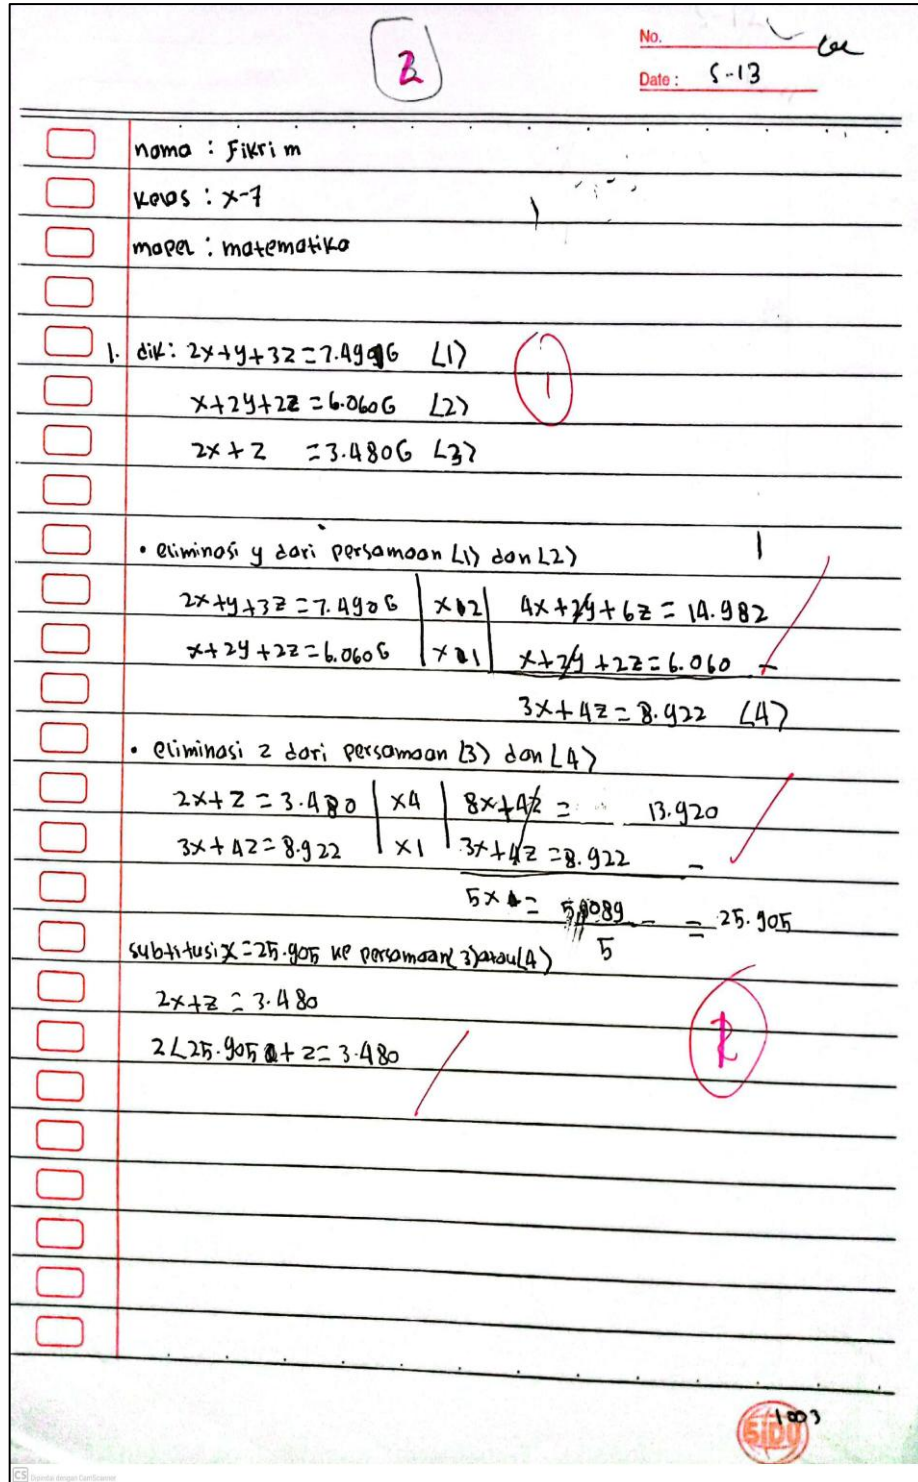 2
No.
Date : S-13
nama : Fikri m
Kelas : x-7
mapel : matematika
1. dik: 2x+y+3z=7.490G (1)
1
x+2y+2z=6.060G (2)
2x+z =3.480G (3)
• eliminasi y dari persamaan (1) dan (2)
2x+y+3z=7.490G | x2 | 4x+2y+6z=14.982
x+2y+2z=6.060G | x1 | x+2y+2z=6.060 -
3x+4z=8.922 (4)
• eliminasi z dari persamaan (3) dan (4)
2x+z=3.480 | x4 | 8x+4z= 13.920
3x+4z=8.922 | x1 | 3x+4z=8.922 -
5x = 5.9089 = 25.905
5
subtitusi x=25.905 ke persamaan(3)atau(4)
2x+z=3.480
2(25.905 + z=3.480
SIDU
CS Dipindai dengan CamScanner